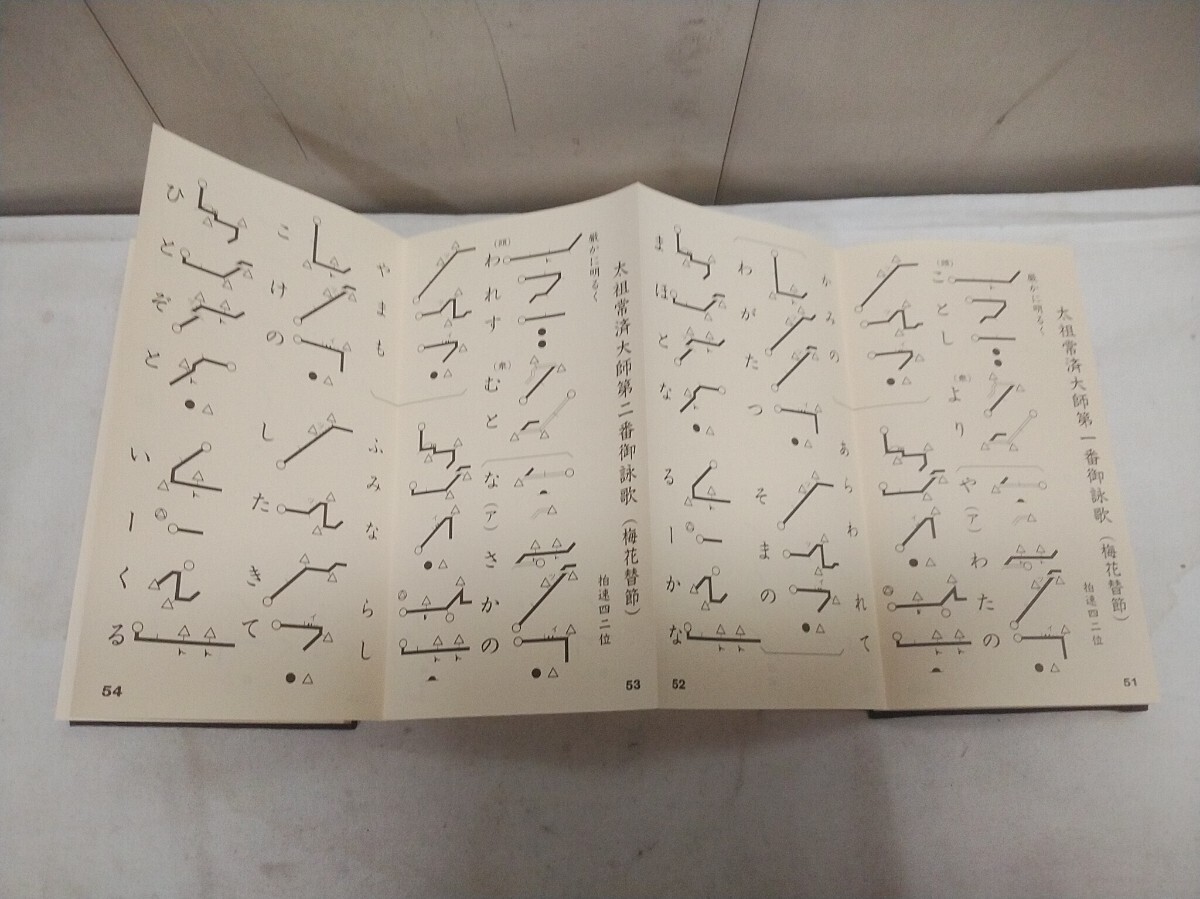 太祖常済大師第一番御詠歌(梅花替節)
拍速四二位
厳かに明るく
(頭)ことし(衆)よりや(ア)わたの
かみの あらわれて
わがたつそまの
まほとなるーかな
51
52
太祖常済大師第二番御詠歌(梅花替節)
拍速四二位
厳かに明るく
(頭)われす(衆)むとな(ア)さかの
やまも ふみならし
こけのしたきて
ひとぞといーくる
53
54